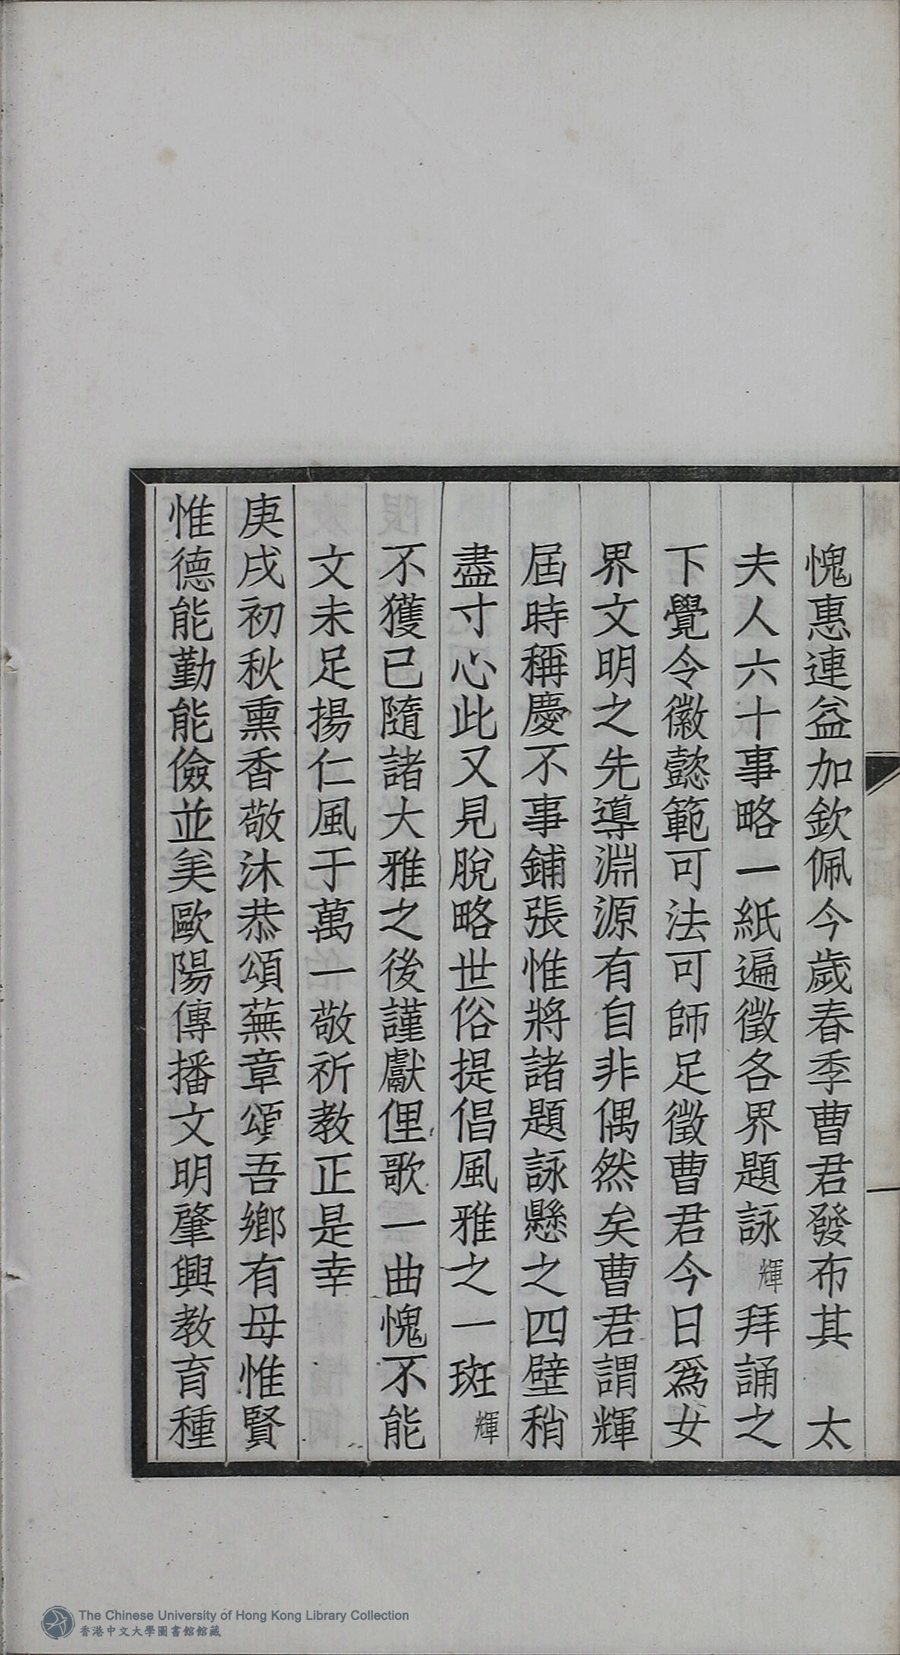 愧惠連益加欽佩今歲春季曹君發布其　太
夫人六十事略一紙遍徵各界題詠輝拜誦之
下覺令徽懿範可法可師足徵曹君今日爲女
界文明之先導淵源有自非偶然矣曹君謂輝
屆時稱慶不事鋪張惟將諸題詠懸之四壁稍
盡寸心此又見脫略世俗提倡風雅之一斑輝
不獲已隨諸大雅之後謹獻俚歌一曲愧不能
文未足揚仁風于萬一敬祈教正是幸
庚戌初秋熏香敬沐恭頌蕪章頌吾鄉有母惟賢
惟德能勤能儉並美歐陽傳播文明肇興教育種
The Chinese University of Hong Kong Library Collection
香港中文大學圖書館館藏